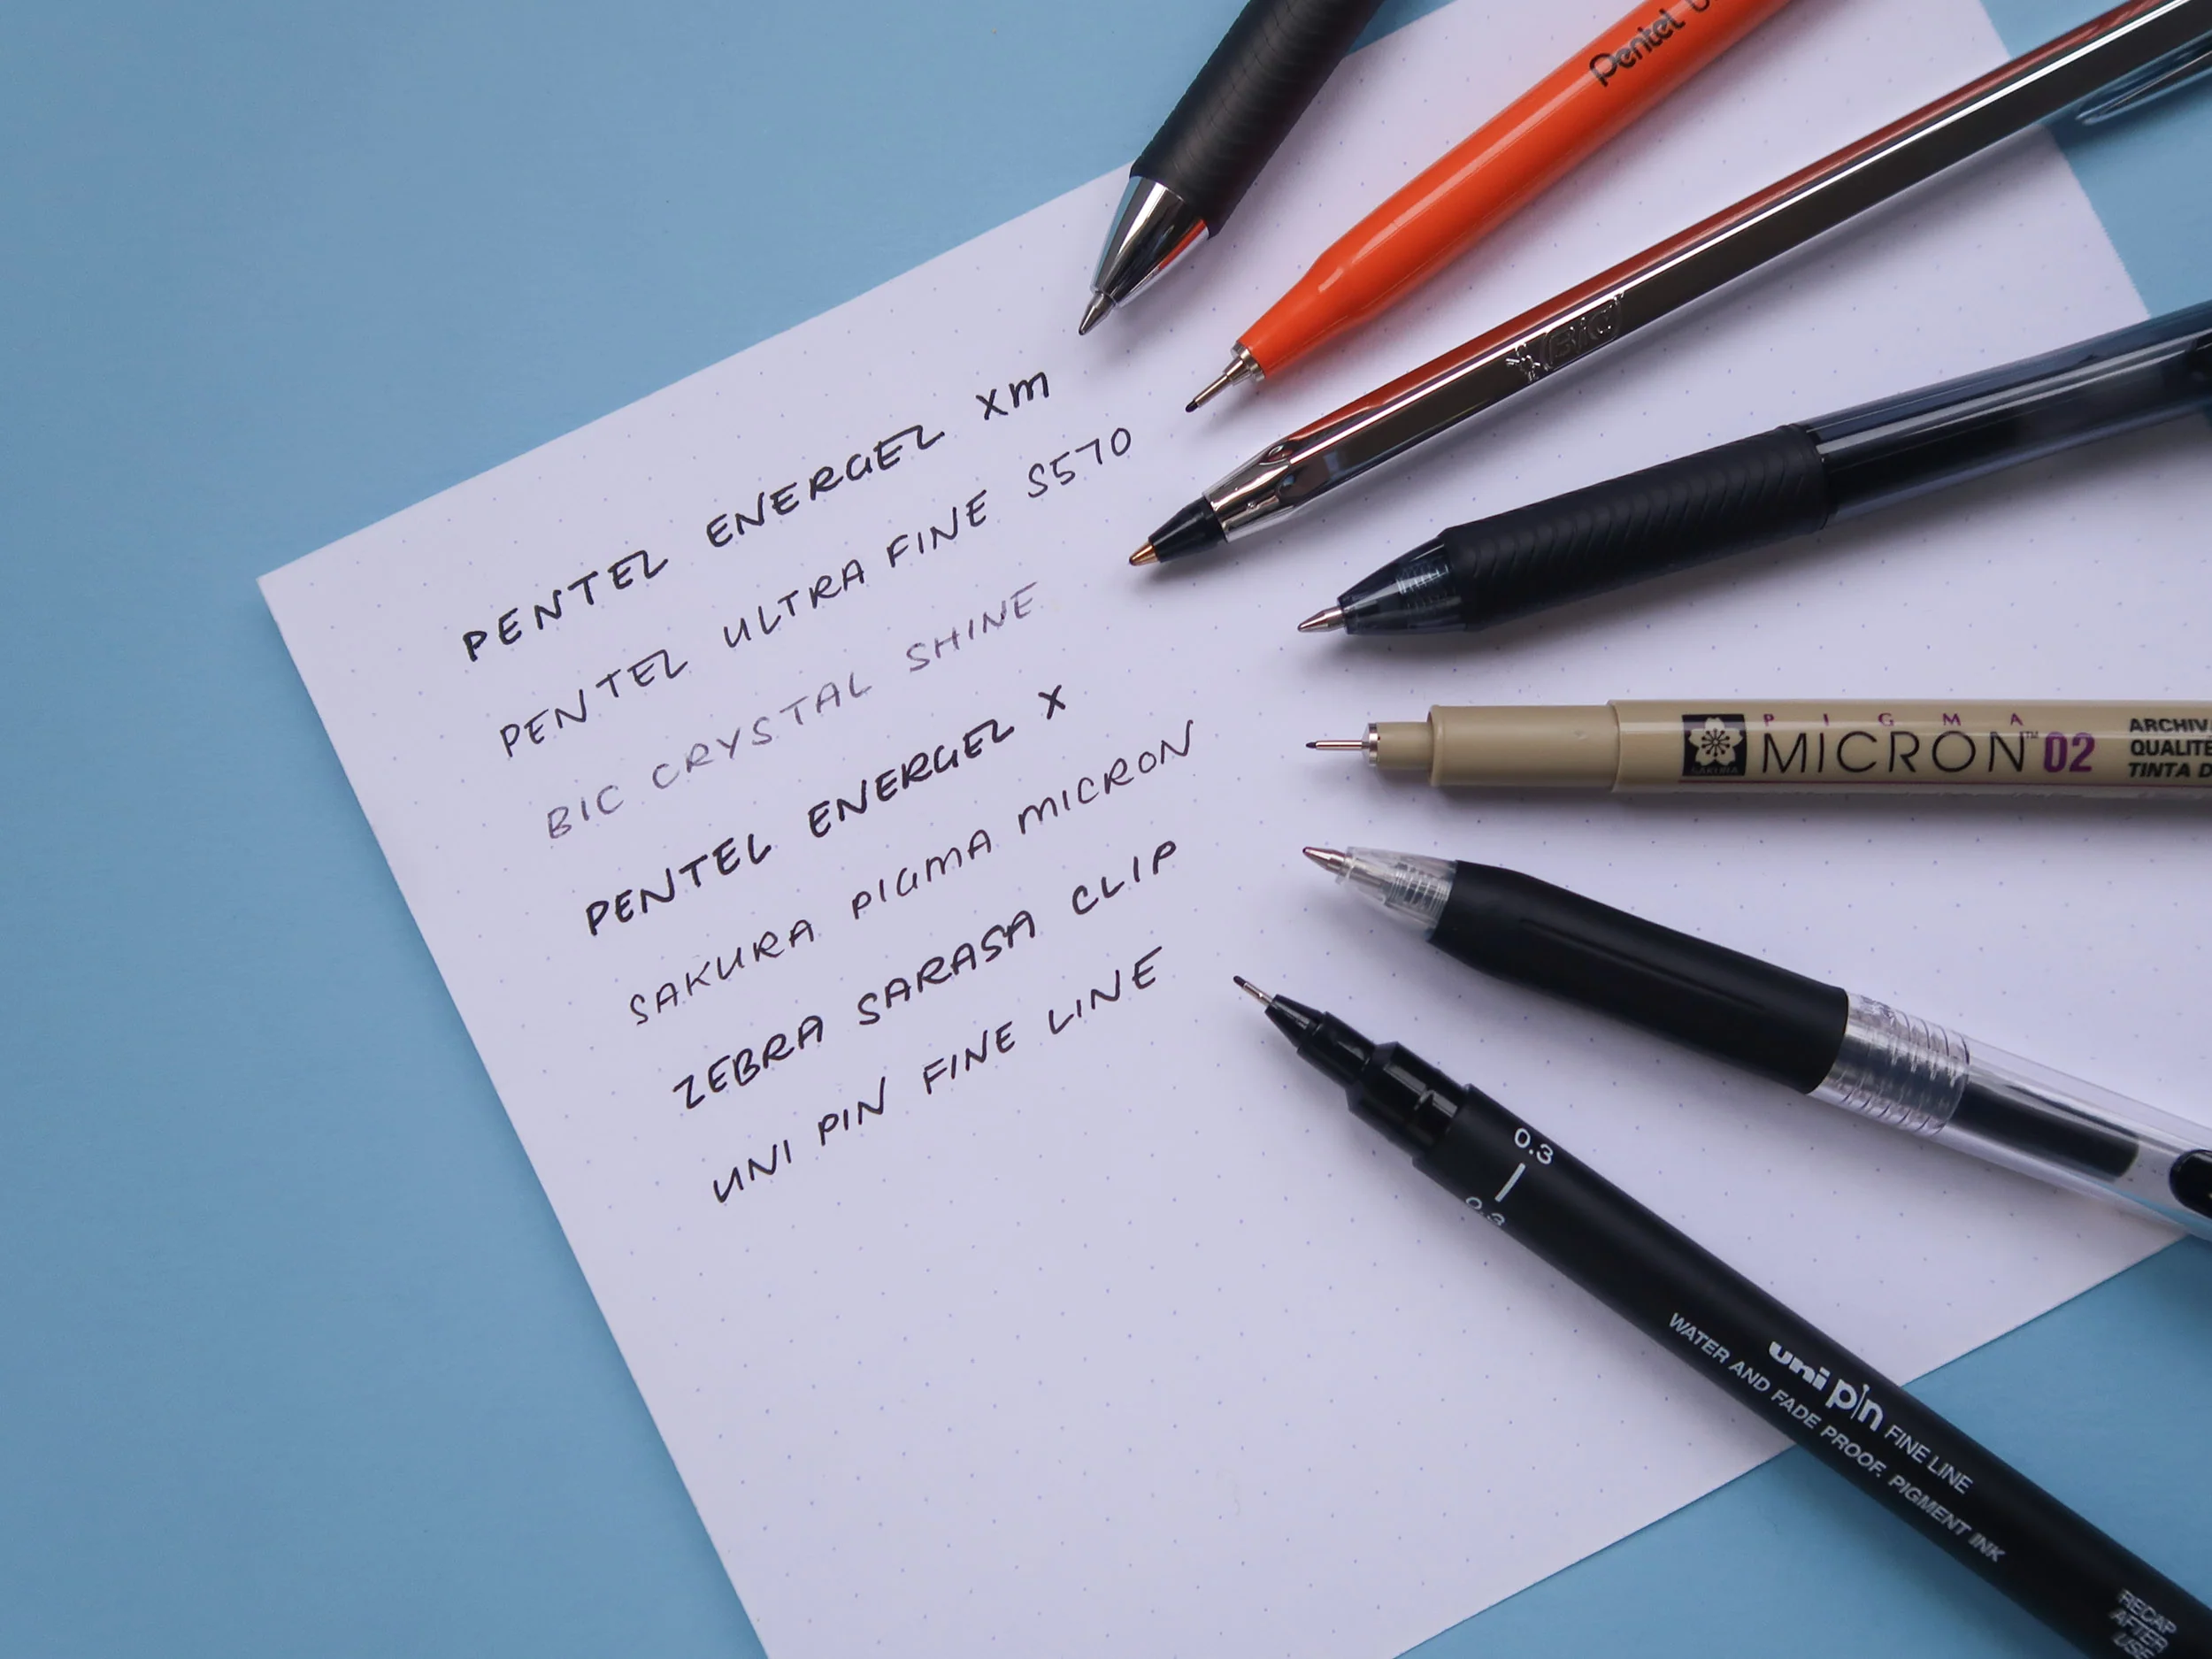 PENTEL ENERGEL XM
PENTEL ULTRA FINE S570
BIC CRYSTAL SHINE
PENTEL ENERGEL X
SAKURA PIGMA MICRON
ZEBRA SARASA CLIP
UNI PIN FINE LINE
Pentel
BIC
PIGMA
MICRON™ 02
SAKURA
QUALITÉ
TINTA
0.3
0.3
uni pin FINE LINE
WATER AND FADE PROOF. PIGMENT INK
RECAP
AFTER
USE